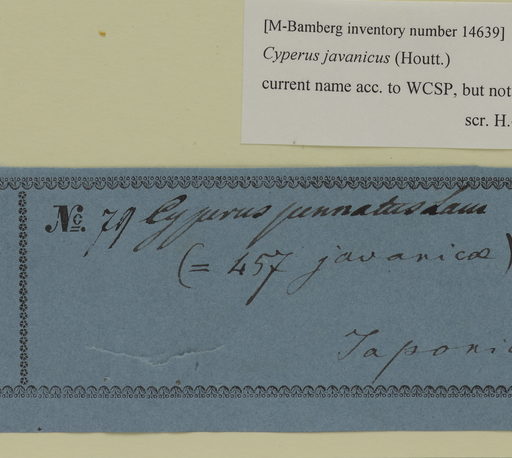 [M-Bamberg inventory number 14639]
Cyperus javanicus (Houtt.)
current name acc. to WCSP, but not
scr. H.
No. 79 Cyperus pennatus Lam
(= 457 javanicæ)
Japonic